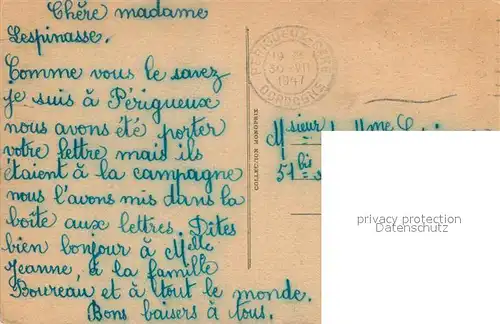 Chère madame
Lespinasse.
Comme vous le savez
je suis à Périgueux
nous avons été porter
votre lettre mais ils
étaient à la campagne
nous l'avons mis dans la
boîte aux lettres. Dites
bien bonjour à Melle
Jeanne, à la famille
Boureau et à tout le monde.
Bons baisers à tous.
COLLECTION MONOPRIX
PERIGUEUX-GARE
30-VII
1947
DORDOGNE
Msieur Mme
51 bis
privacy protection
Datenschutz